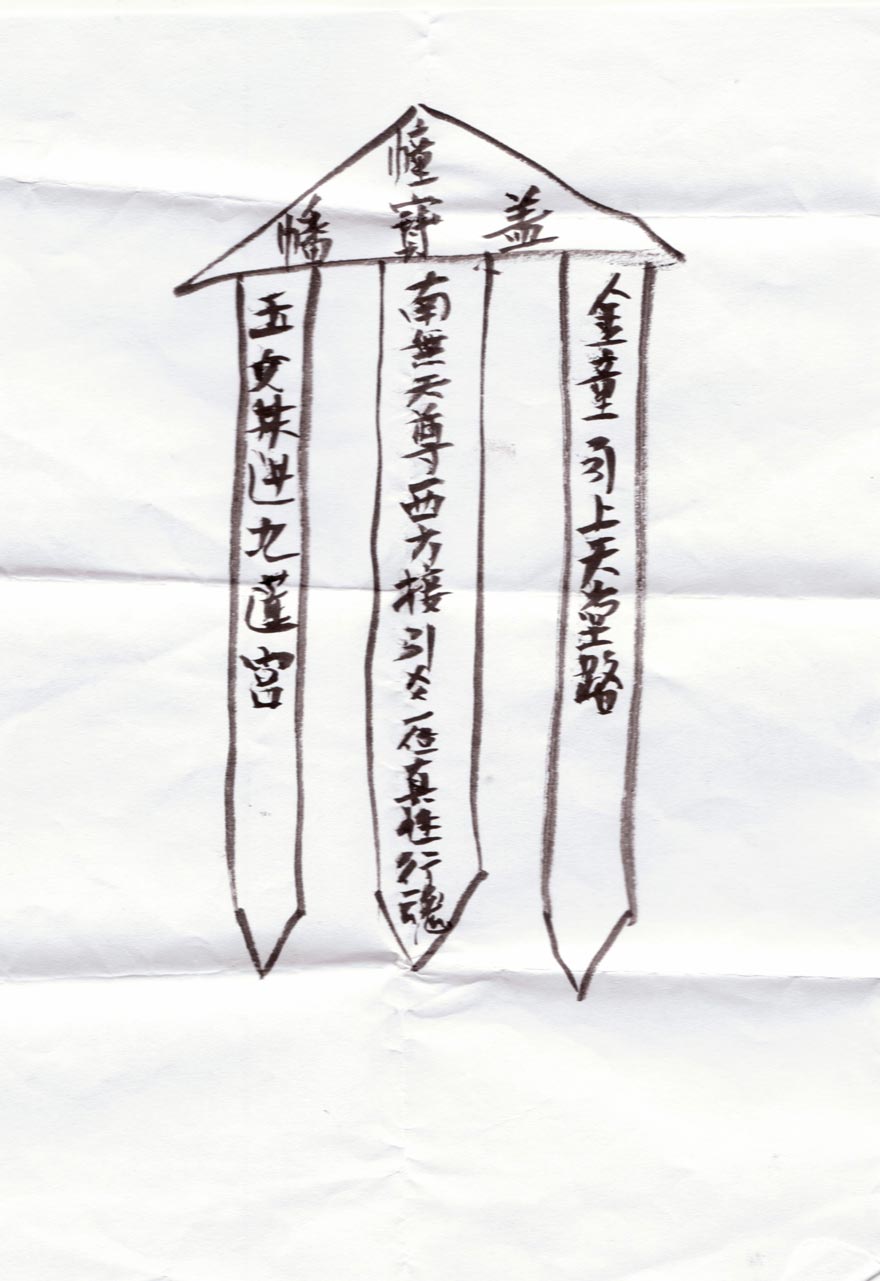 幢
幡寶盖
金童引上天堂路
南無天尊西方接引一位真性行魂
玉女扶进九蓮宮